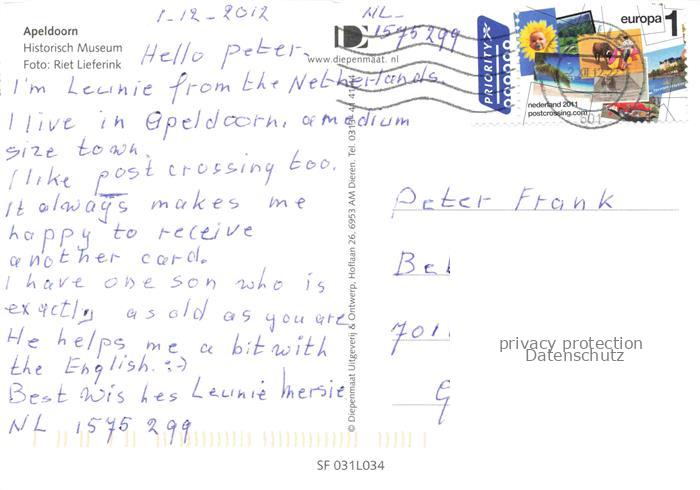 1-12-2012
NL-
1575299
Apeldoorn
Historisch Museum
Foto: Riet Lieferink
Hello Peter.
www.diepenmaat.nl
I'm Leunie from the Netherlands.
I live in Apeldoorn. a medium
size town.
I like post crossing too.
It always makes me
happy to receive
another card.
I have one son who is
exactly as old as you are
He helps me a bit with
the English. :-)
Best Wishes Leunie Mersie
NL 1575 299
© Diepenmaat Uitgeverij & Ontwerp, Hoflaan 26, 6953 AM Dieren. Tel. 0313
PRIORITY
europa 1
nederland 2011
postcrossing.com
Peter Frank
701
privacy protection
Datenschutz
SF 031L034